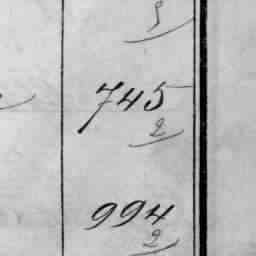 745
2
994
2